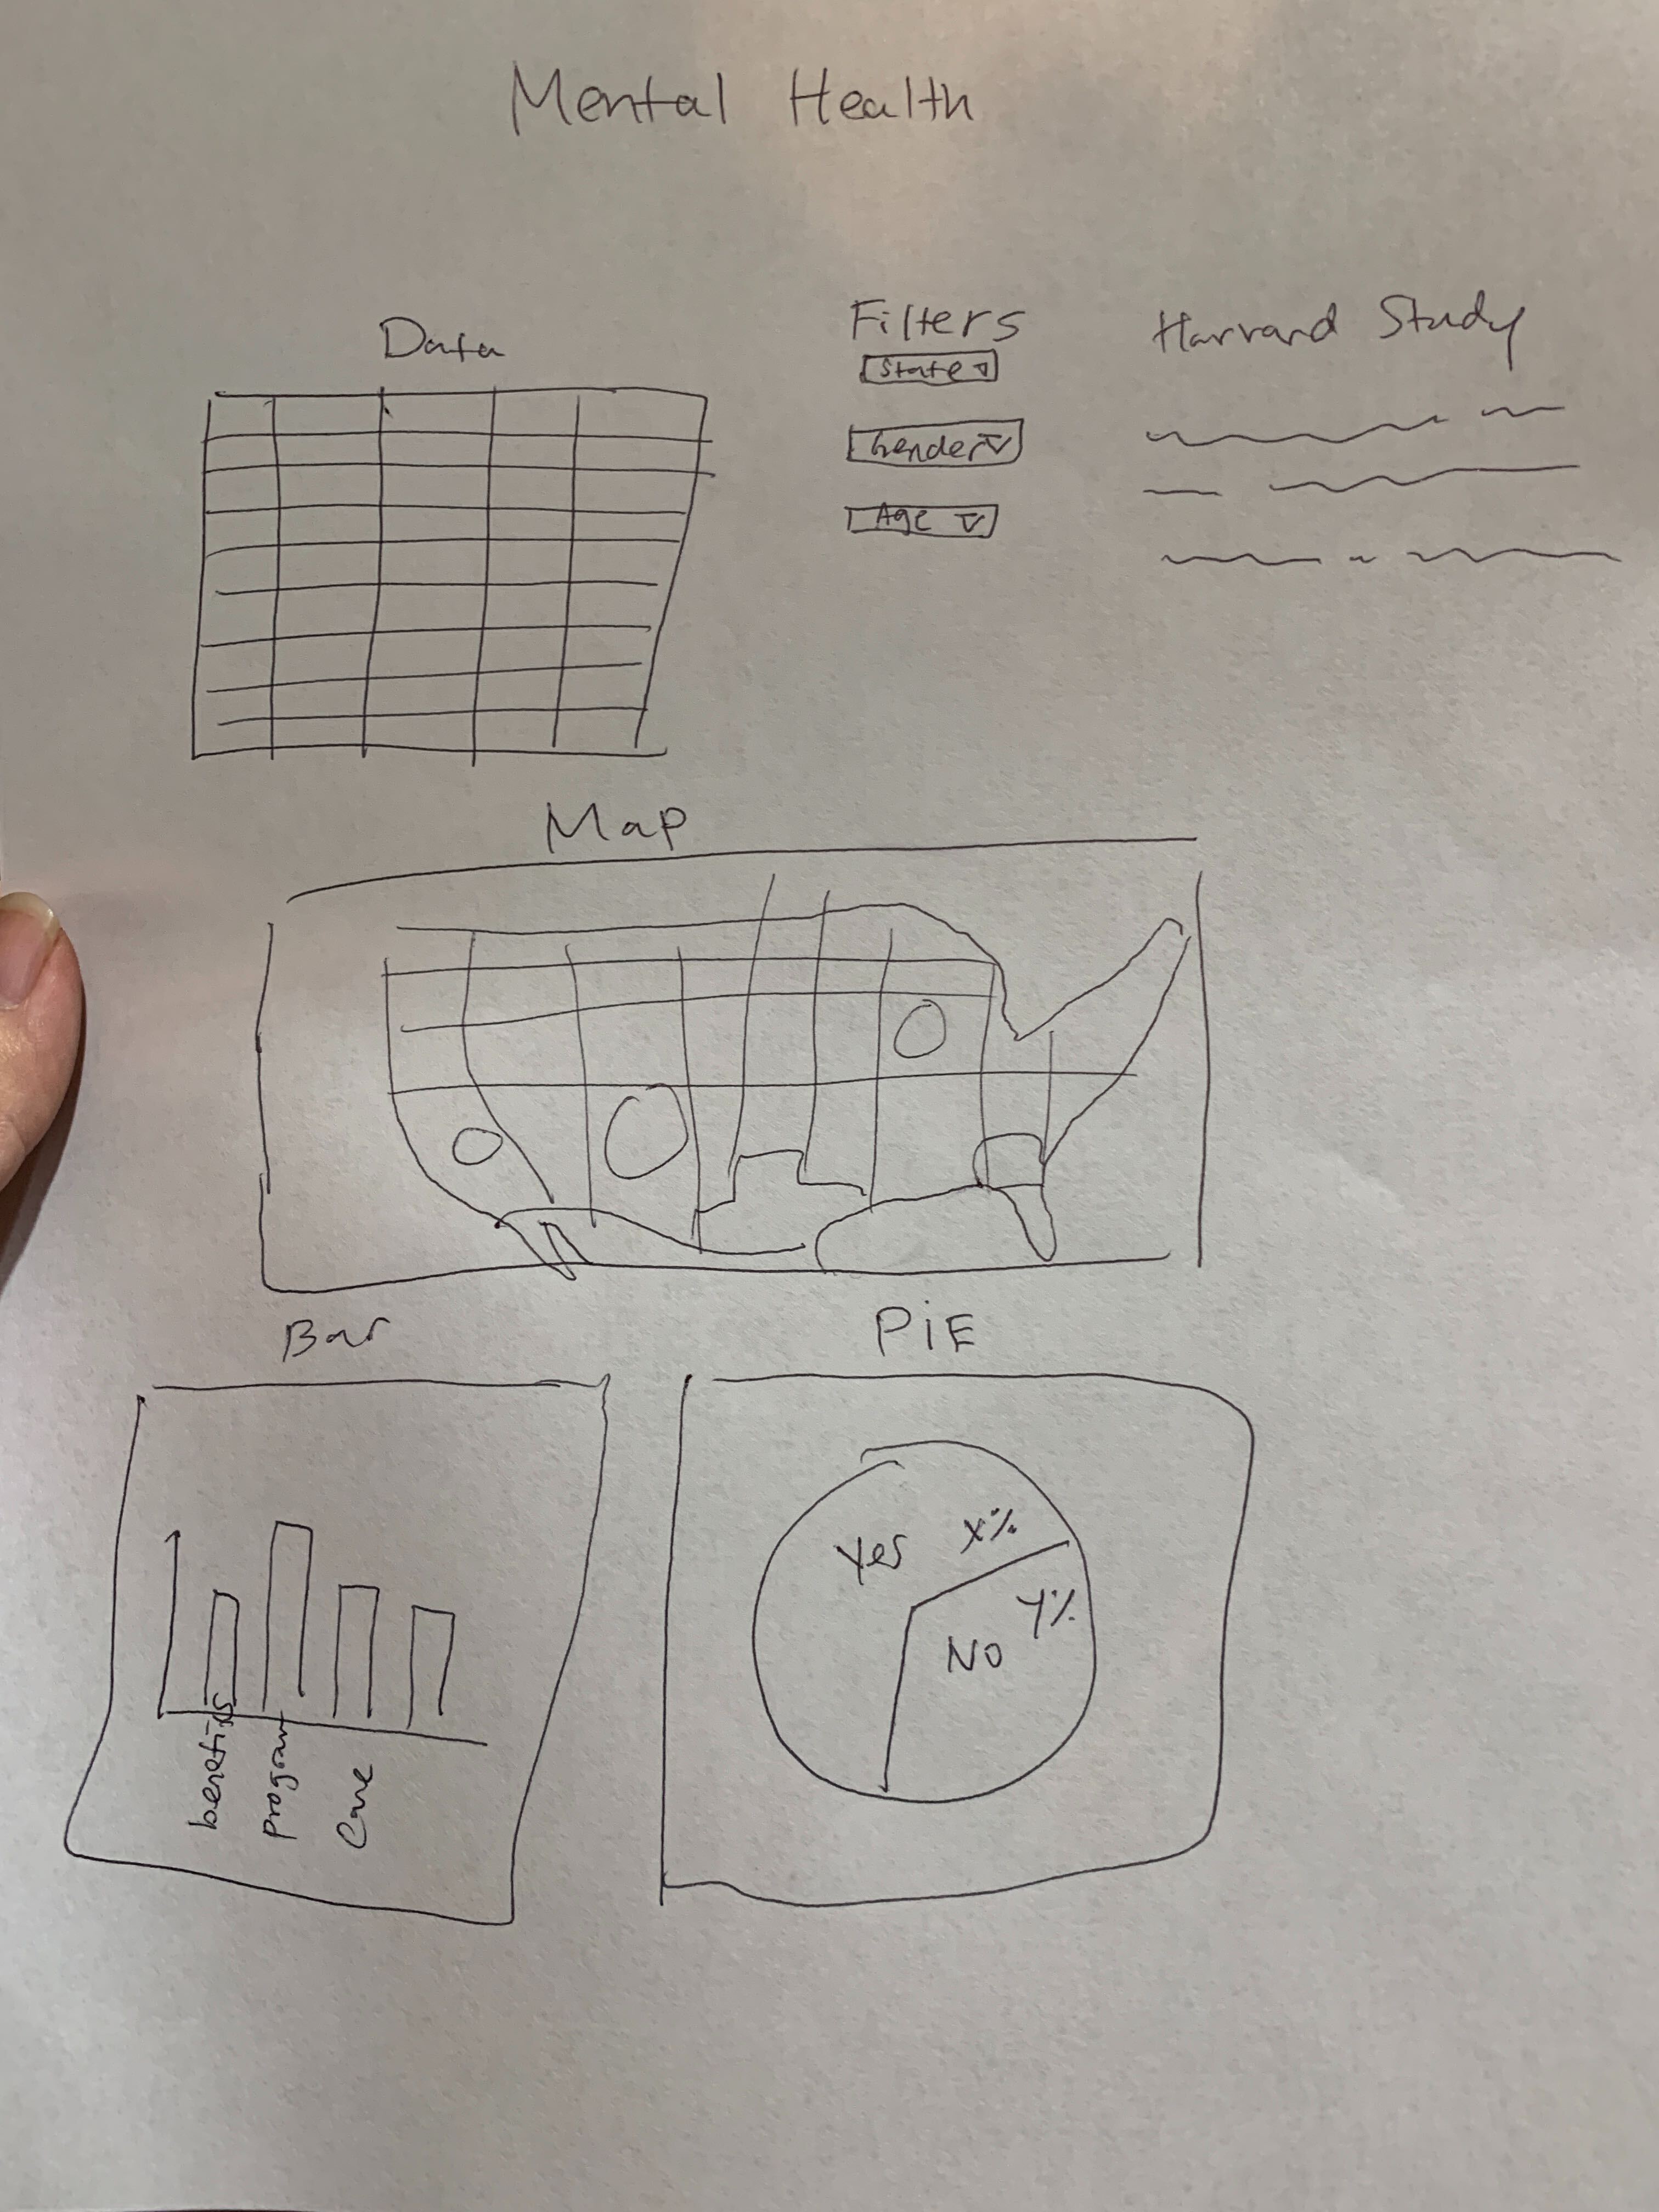 Mental Health
Data
Filters
State
Gender
Age
Harvard Study
Map
Bar
benefits
Program
Care
PiE
Yes X%
No Y%